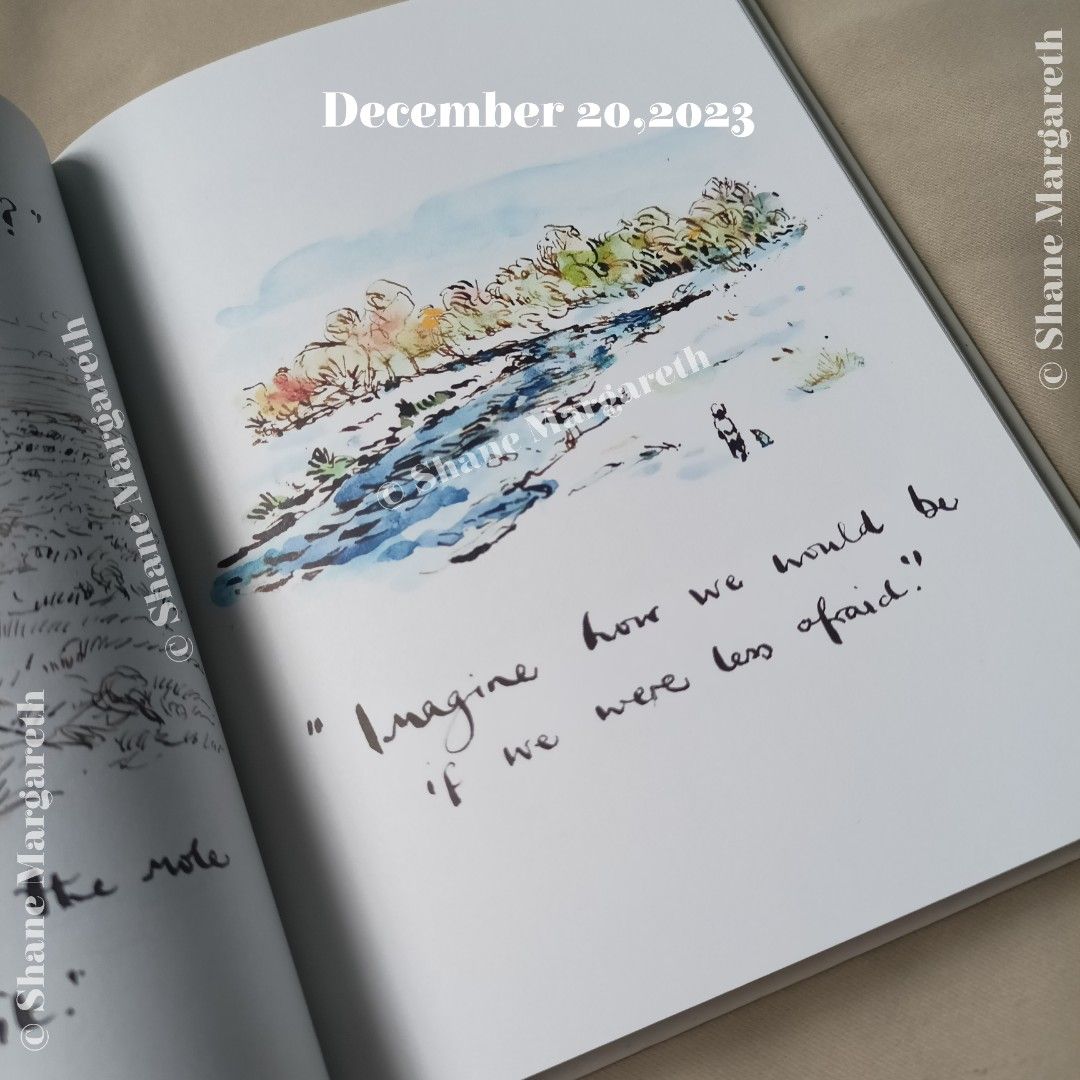 December 20,2023
© Shane Margareth
© Shane Margareth
© Shane Margareth
© Shane Margareth
"Imagine how we would be
if we were less afraid."
the mole